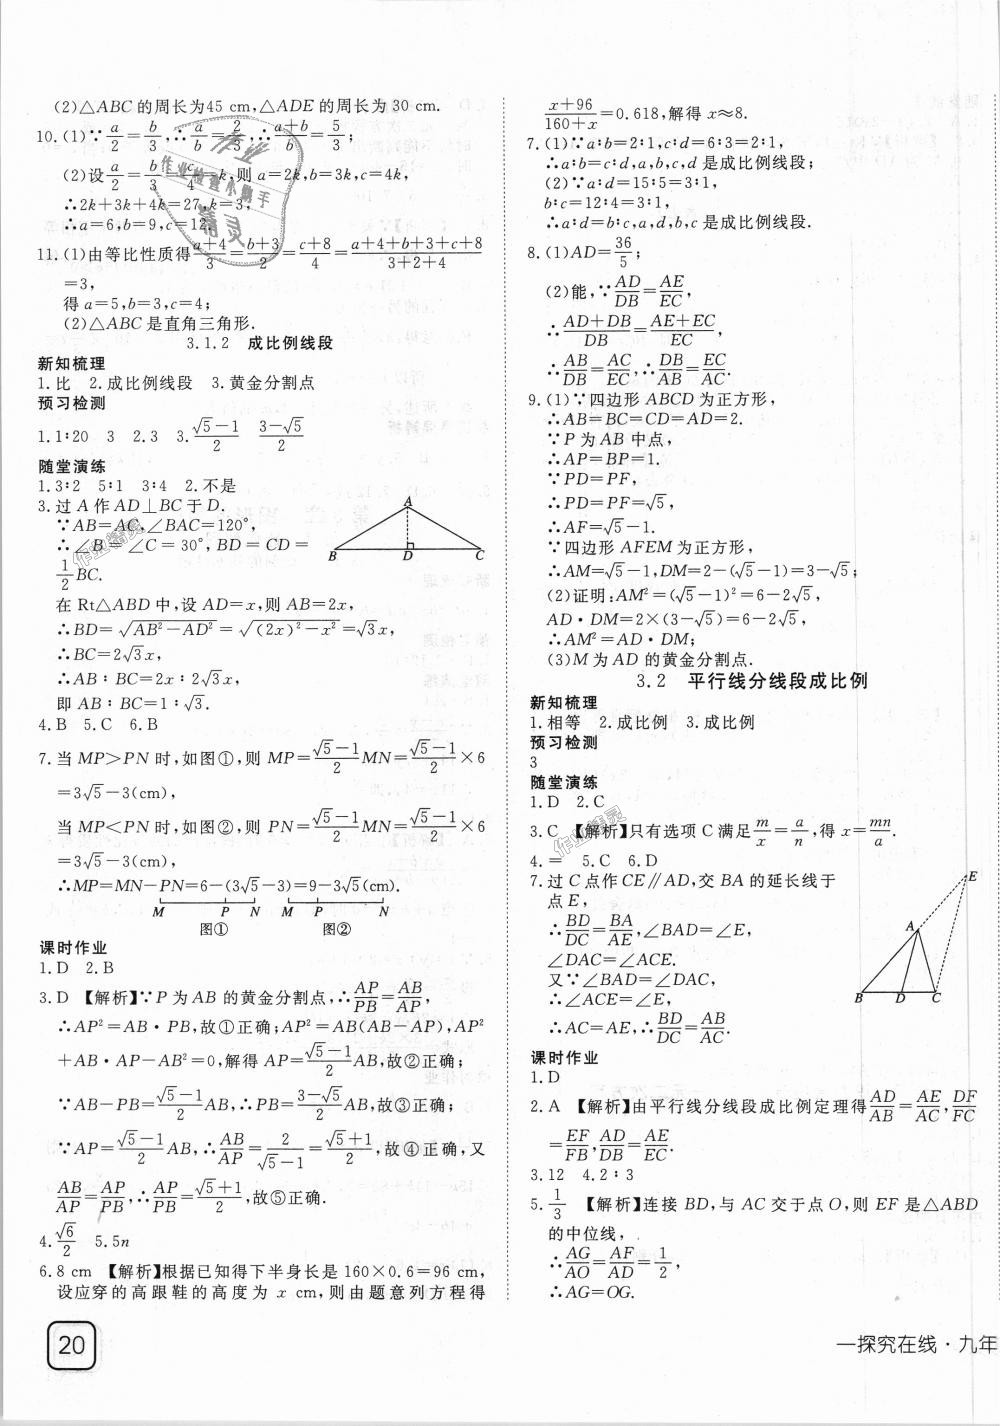 (2)△ABC 的周长为45 cm,△ADE 的周长为 30 cm.
10.(1)∵a/2=b/3,∴a/b=2/3,∴(a+b)/b=5/3;
(2)设a/2=b/3=c/4=k,则 a=2k,b=3k,c=4k,
∴2k+3k+4k=27,k=3,
∴a=6,b=9,c=12.
11.(1)由等比性质得(a+4)/3=(b+3)/2=(c+8)/4=(a+4+b+3+c+8)/(3+2+4)
=3,
得 a=5,b=3,c=4;
(2)△ABC 是直角三角形.
3.1.2 成比例线段
新知梳理
1.比 2.成比例线段 3.黄金分割点
预习检测
1.1∶20 3 2.3 3.(√5-1)/2 (3-√5)/2
随堂演练
1.3∶2 5∶1 3∶4 2.不是
3.过 A 作 AD⊥BC 于 D.
∵AB=AC,∠BAC=120°,
∴∠B=∠C=30°,BD=CD=
1/2 BC.
在 Rt△ABD 中,设 AD=x,则 AB=2x,
∴BD=√(AB²-AD²)=√((2x)²-x²)=√3x,
∴BC=2√3x,
∴AB∶BC=2x∶2√3x,
即 AB∶BC=1∶√3.
A
B D C
4.B 5.C 6.B
7.当 MP>PN 时,如图①,则 MP=(√5-1)/2 MN=(√5-1)/2×6
=3√5-3(cm),
当 MP<PN 时,如图②,则 PN=(√5-1)/2 MN=(√5-1)/2×6
=3√5-3(cm),
∴MP=MN-PN=6-(3√5-3)=9-3√5(cm).
M P N M P N
图① 图②
课时作业
1.D 2.B
3.D 【解析】∵P 为 AB 的黄金分割点,∴AP/PB=AB/AP,
∴AP²=AB·PB,故①正确;AP²=AB(AB-AP),AP²
+AB·AP-AB²=0,解得 AP=(√5-1)/2 AB,故②正确;
∵AB-PB=(√5-1)/2 AB,∴PB=(3-√5)/2 AB,故③正确;
∵AP=(√5-1)/2 AB,∴AB/AP=2/(√5-1)=(√5+1)/2,故④正确,又
AB/AP=AP/PB,∴AP/PB=(√5+1)/2,故⑤正确.
4.√6/2 5.5n
6.8 cm 【解析】根据已知得下半身长是 160×0.6=96 cm,
设应穿的高跟鞋的高度为 x cm,则由题意列方程得
20
(x+96)/(160+x)=0.618,解得 x≈8.
7.(1)∵a∶b=2∶1,c∶d=6∶3=2∶1,
∴a∶b=c∶d,a,b,c,d 是成比例线段;
(2)∵a∶d=15∶5=3∶1,
b∶c=12∶4=3∶1,
∴a∶d=b∶c,a,d,b,c 是成比例线段.
8.(1)AD=36/5;
(2)能,∵AD/DB=AE/EC,
∴(AD+DB)/DB=(AE+EC)/EC,
∴AB/DB=AC/EC,∴DB/AB=EC/AC.
9.(1)∵四边形 ABCD 为正方形,
∴AB=BC=CD=AD=2.
∵P 为 AB 中点,
∴AP=BP=1.
∵PD=PF,
∴PD=PF=√5,
∴AF=√5-1.
∵四边形 AFEM 为正方形,
∴AM=√5-1,DM=2-(√5-1)=3-√5;
(2)证明:AM²=(√5-1)²=6-2√5,
AD·DM=2×(3-√5)=6-2√5,
∴AM²=AD·DM;
(3)M 为 AD 的黄金分割点.
3.2 平行线分线段成比例
新知梳理
1.相等 2.成比例 3.成比例
预习检测
3
随堂演练
1.D 2.C
3.C 【解析】只有选项 C 满足m/x=a/n,得 x=mn/a.
4.= 5.C 6.D
7.过 C 点作 CE∥AD,交 BA 的延长线于
点 E,
∴BD/DC=BA/AE,∠BAD=∠E,
∠DAC=∠ACE.
又∵∠BAD=∠DAC,
∴∠ACE=∠E,
∴AC=AE,∴BD/DC=AB/AC.
E
A
B D C
课时作业
1.D
2.A 【解析】由平行线分线段成比例定理得AD/AB=AE/AC,DF/FC
=EF/FB,AD/DB=AE/EC.
3.12 4.2∶3
5.1/3 【解析】连接 BD,与 AC 交于点 O,则 EF 是△ABD
的中位线,
∴AG/AO=AF/AD=1/2,
∴AG=OG.
一探究在线·九年